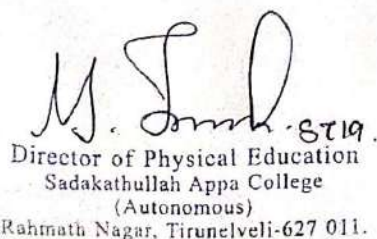 Director of Physical Education
Sadakathullah Appa College
(Autonomous)
Rahmath Nagar, Tirunelveli-627 011.